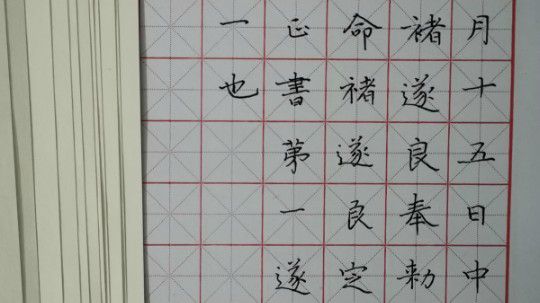 月十五日中
褚遂良奉勅
命褚遂良定
正書第一遂
一也